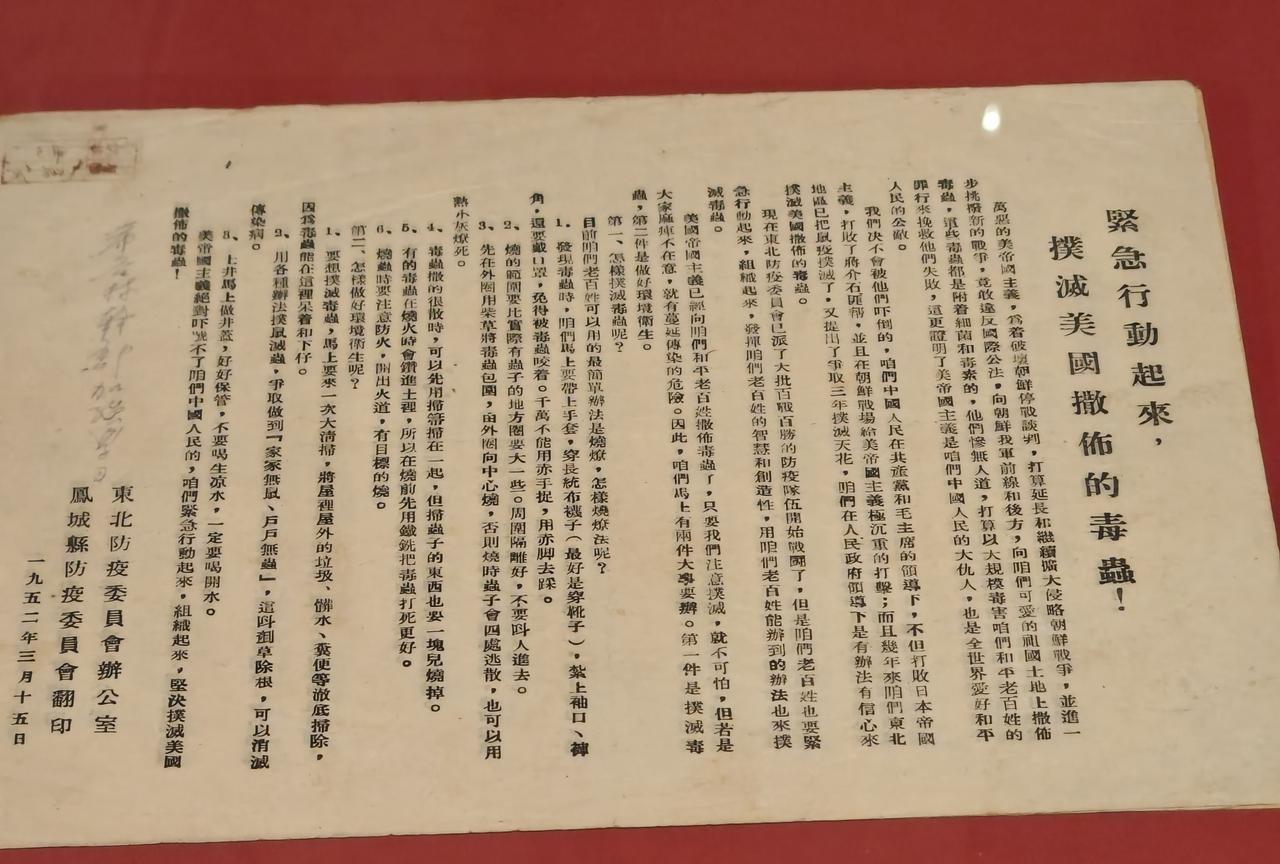 緊急行動起來，
撲滅美國撒佈的毒蟲！
萬惡的美帝國主義，爲着破壞朝鮮停戰談判，打算延長和繼續擴大侵略朝鮮戰爭，並進一
步挑撥新的戰爭，竟敢違反國際公法，向朝鮮我軍前線和後方，向咱們可愛的祖國土地上撒佈
毒蟲，這些毒蟲都是附着細菌和毒素的，他們慘無人道，打算以大規模毒害咱們和平老百姓的
罪行來挽救他們失敗，這更證明了美帝國主義是咱們中國人民的大仇人，也是全世界愛好和平
人民的公敵。
我們決不會被他們吓倒的，咱們中國人民在共產黨和毛主席的領導下，不但打敗日本帝國
主義，打敗了蔣介石匪幫，並且在朝鮮戰場給美帝國主義極沉重的打擊；而且幾年來咱們東北
地區已把鼠疫撲滅了，又提出了爭取三年撲滅天花，咱們在人民政府領導下是有辦法有信心來
撲滅美國撒佈的毒蟲。
現在東北防疫委員會已派了大批百戰百勝的防疫隊伍開始戰鬪了，但是咱們老百姓也要緊
急行動起來，組織起來，發揮咱們老百姓的智慧和創造性，用咱們老百姓能辦到的辦法也來撲
滅毒蟲。
美國帝國主義已經向咱們和平老百姓撒佈毒蟲了，只要我們注意撲滅，就不可怕，但若是
大家麻痺不在意，就有蔓延傳染的危險。因此，咱們馬上有兩件大事要辦。第一件是撲滅毒
蟲，第二件是做好環境衛生。
第一、怎樣撲滅毒蟲呢？
目前咱們老百姓可以用的最簡單辦法是燒燎，怎樣燒燎法呢？
1、發現毒蟲時，咱們馬上要帶上手套，穿長統布襪子（最好是穿靴子），紮上袖口、褲
角，還要戴口罩，免得被毒蟲咬着。千萬不能用赤手捉，用赤脚去踩。
2、燒的範圍要比實際有蟲子的地方圈要大一些。周圍隔離好，不要叫人進去。
3、先在外圈用柴草將毒蟲包圍，由外圈向中心燒，否則燒時蟲子會四處逃散，也可以用
熱小灰燎死。
4、毒蟲撒的很散時，可以先用掃箒掃在一起，但掃蟲子的東西也要一塊兒燒掉。
5、有的毒蟲在燒火時會鑽進土裡，所以在燒前先用鐵銑把毒蟲打死更好。
6、燒蟲時要注意防火，開出火道，有目標的燒。
第二、怎樣做好環境衛生呢？
1、要想撲滅毒蟲，馬上要來一次大清掃，將屋裡屋外的垃圾、髒水、糞便等澈底掃除，
因爲毒蟲能在這裡呆着和下仔。
2、用各種辦法撲鼠滅蟲，爭取做到『家家無鼠、戶戶無蟲』，這叫剷草除根，可以消滅
傳染病。
3、上井馬上做井蓋，好好保管，不要喝生凉水，一定要喝開水。
美帝國主義絕對吓唬不了咱們中國人民的，咱們緊急行動起來，組織起來，堅決撲滅美國
撒佈的毒蟲！
東北防疫委員會辦公室
鳳城縣防疫委員會翻印
一九五二年三月十五日